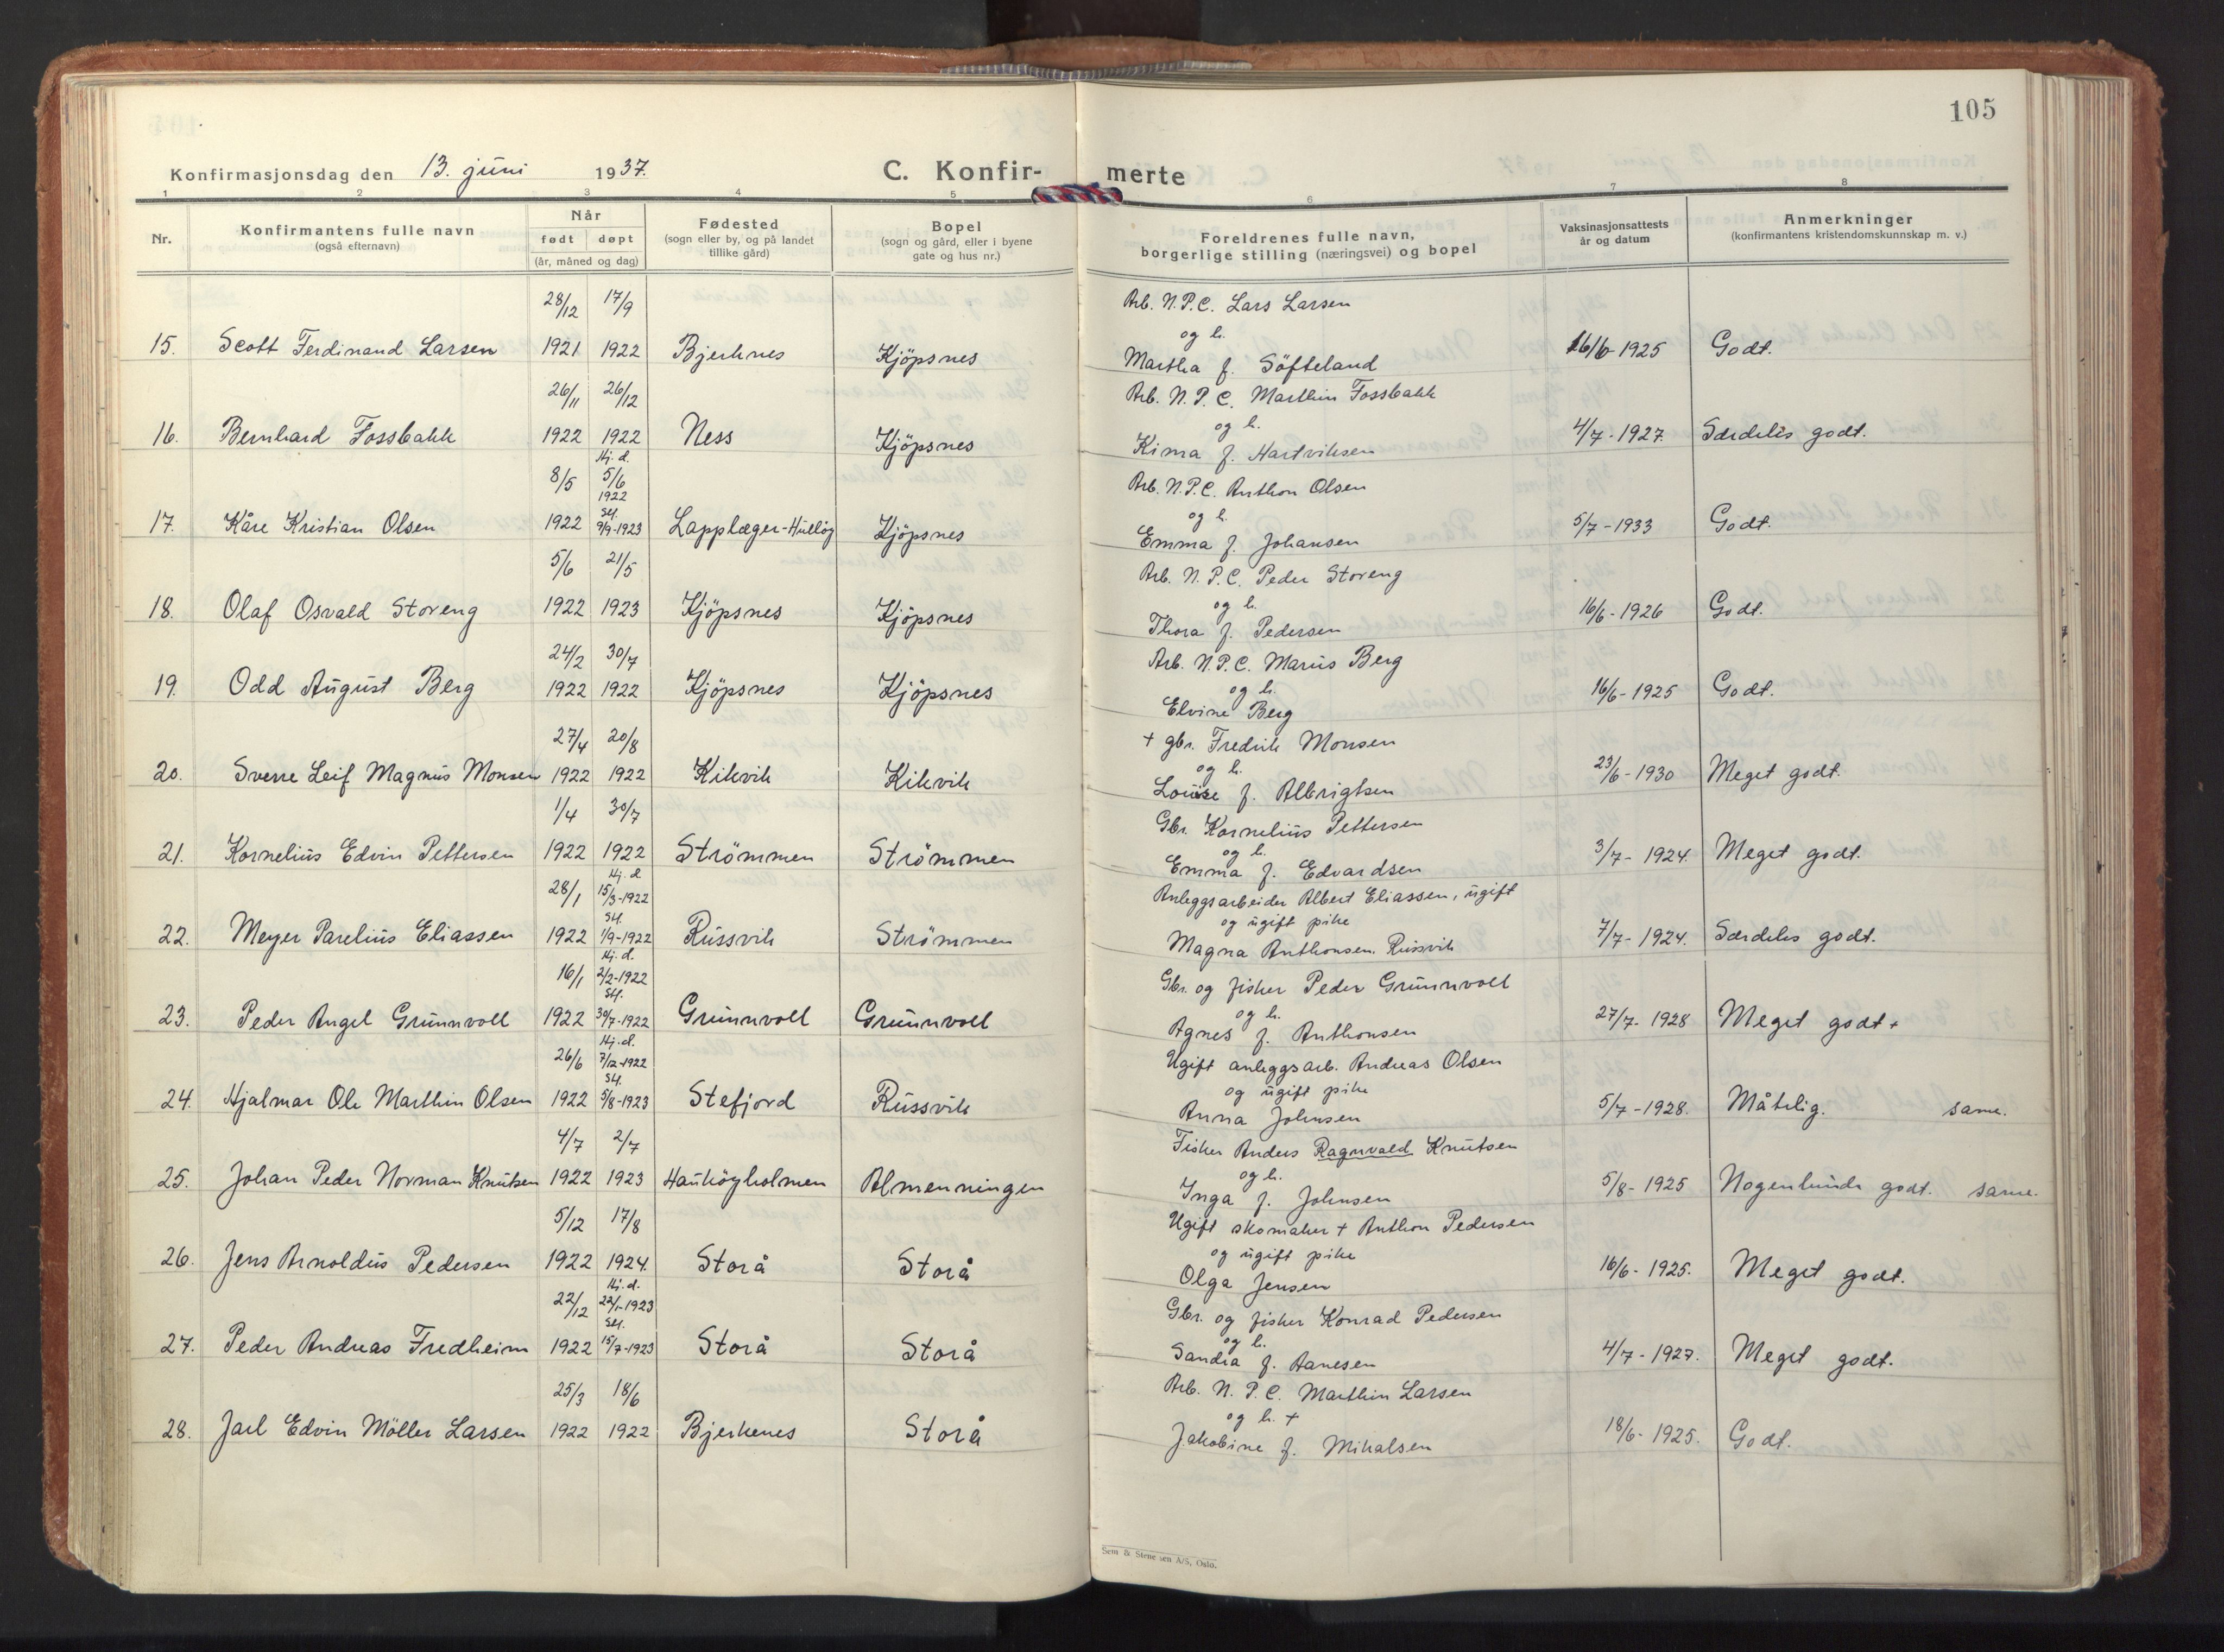 105
Konfirmasjonsdag den 13. juni 1937. C. Konfir- merte
1 2 3 4 5 6 7 8
Nr. Konfirmantens fulle navn (også efternavn) Når født døpt (år, måned og dag) Fødested (sogn eller by, og på landet tillike gård) Bopel (sogn og gård, eller i byene gate og hus nr.) Foreldrenes fulle navn, borgerlige stilling (næringsvei) og bopel Vaksinasjonsattests år og datum Anmerkninger (konfirmantens kristendomskunnskap m. v.)
28/12 17/9 Arb. N.P.C. Lars Larsen
og h.
15. Scott Ferdinand Larsen 1921 1922 Bjerknes Kjöpsnes Martha f. Söfteland 16/6-1925 Godt.
26/11 26/12 Arb. N.P.C. Marthin Fossbakk
og h.
16. Bernhard Fossbakk 1922 1922 Ness Kjöpsnes Kima f. Hartviksen 4/7-1927. Særdeles godt.
8/5 Hj. d. 5/6 1922 Arb. N.P.C. Anthon Olsen
og h.
17. Kåre Kristian Olsen 1922 st. 9/9-1923 Lapplæger- Kjöpsnes Emma f. Johansen 5/7-1933 Godt.
5/6 21/5 Arb. N.P.C. Peder Storeng
og h.
18. Olaf Osvald Storeng 1922 1923 Kjöpsnes Kjöpsnes Thora f. Pedersen 16/6-1926 Godt.
24/2 30/7 Arb. N.P.C. Marius Berg
og h.
19. Odd August Berg 1922 1922 Kjöpsnes Kjöpsnes Elvine Berg 16/6-1925 Godt.
27/4 20/8 + gbr. Fredrik Monsen
og h.
20. Sverre Leif Magnus Monsen 1922 1922 Kikvik Kikvik Louise f. Albrigtsen 23/6-1930 Meget godt.
1/4 30/7 Gbr. Kornelius Pettersen
og h.
21. Kornelius Edvin Pettersen 1922 1922 Strömmen Strömmen Emma f. Edvardsen 3/7-1924. Meget godt.
28/1 Hj. d. 15/3-1922 Anleggsarbeider Albert Eliassen, ugift
og ugift pike
22. Meyer Parelius Eliassen 1922 st. 1/9-1922 Russvik Strömmen Magna Anthonsen. Russvik 7/7-1924. Særdeles godt.
16/1 Hj. d. 2/2-1922 Gbr. og fisker Peder Grunnvoll
og h.
23. Peder Angel Grunnvoll 1922 st. 30/7-1922 Grunnvoll Grunnvoll Agnes f. Anthonsen 27/7-1928 Meget godt +
26/6 Hj. d. 7/12-1922 Ugift anleggsarb. Andreas Olsen
og ugift pike
24. Hjalmar Ole Marthin Olsen 1922 st. 5/8-1923 Stefjord Russvik Anna Johnsen 5/7-1928. Måtelig. same.
4/7 2/7 Fisker Anders Ragnvald Knutsen
og h.
25. Johan Peder Norman Knutsen 1922 1923 Haukögholmen Almenningen Inga f. Johnsen 5/8-1925 Nogenlunde godt. same.
5/12 17/8 Ugift skomaker + Anthon Pedersen
og ugift pike
26. Jens Arnoldus Pedersen 1922 1924. Storå Storå Olga Jensen 16/6-1925. Meget godt.
22/12 Hj. d. 22/1-1923 Gbr. og fisker Konrad Pedersen
og h.
27. Peder Andreas Fredheim 1922 st. 15/7-1923 Storå Storå Sandra f. Aanesen 4/7-1927. Meget godt.
25/3 18/6 Arb. N.P.C. Marthin Larsen
og h. +
28. Jarl Edvin Möller Larsen 1922 1922 Bjerkenes Storå Jakobine f. Mikalsen 18/6-1925. Godt.
Sem & Stenersen A/S, Oslo.